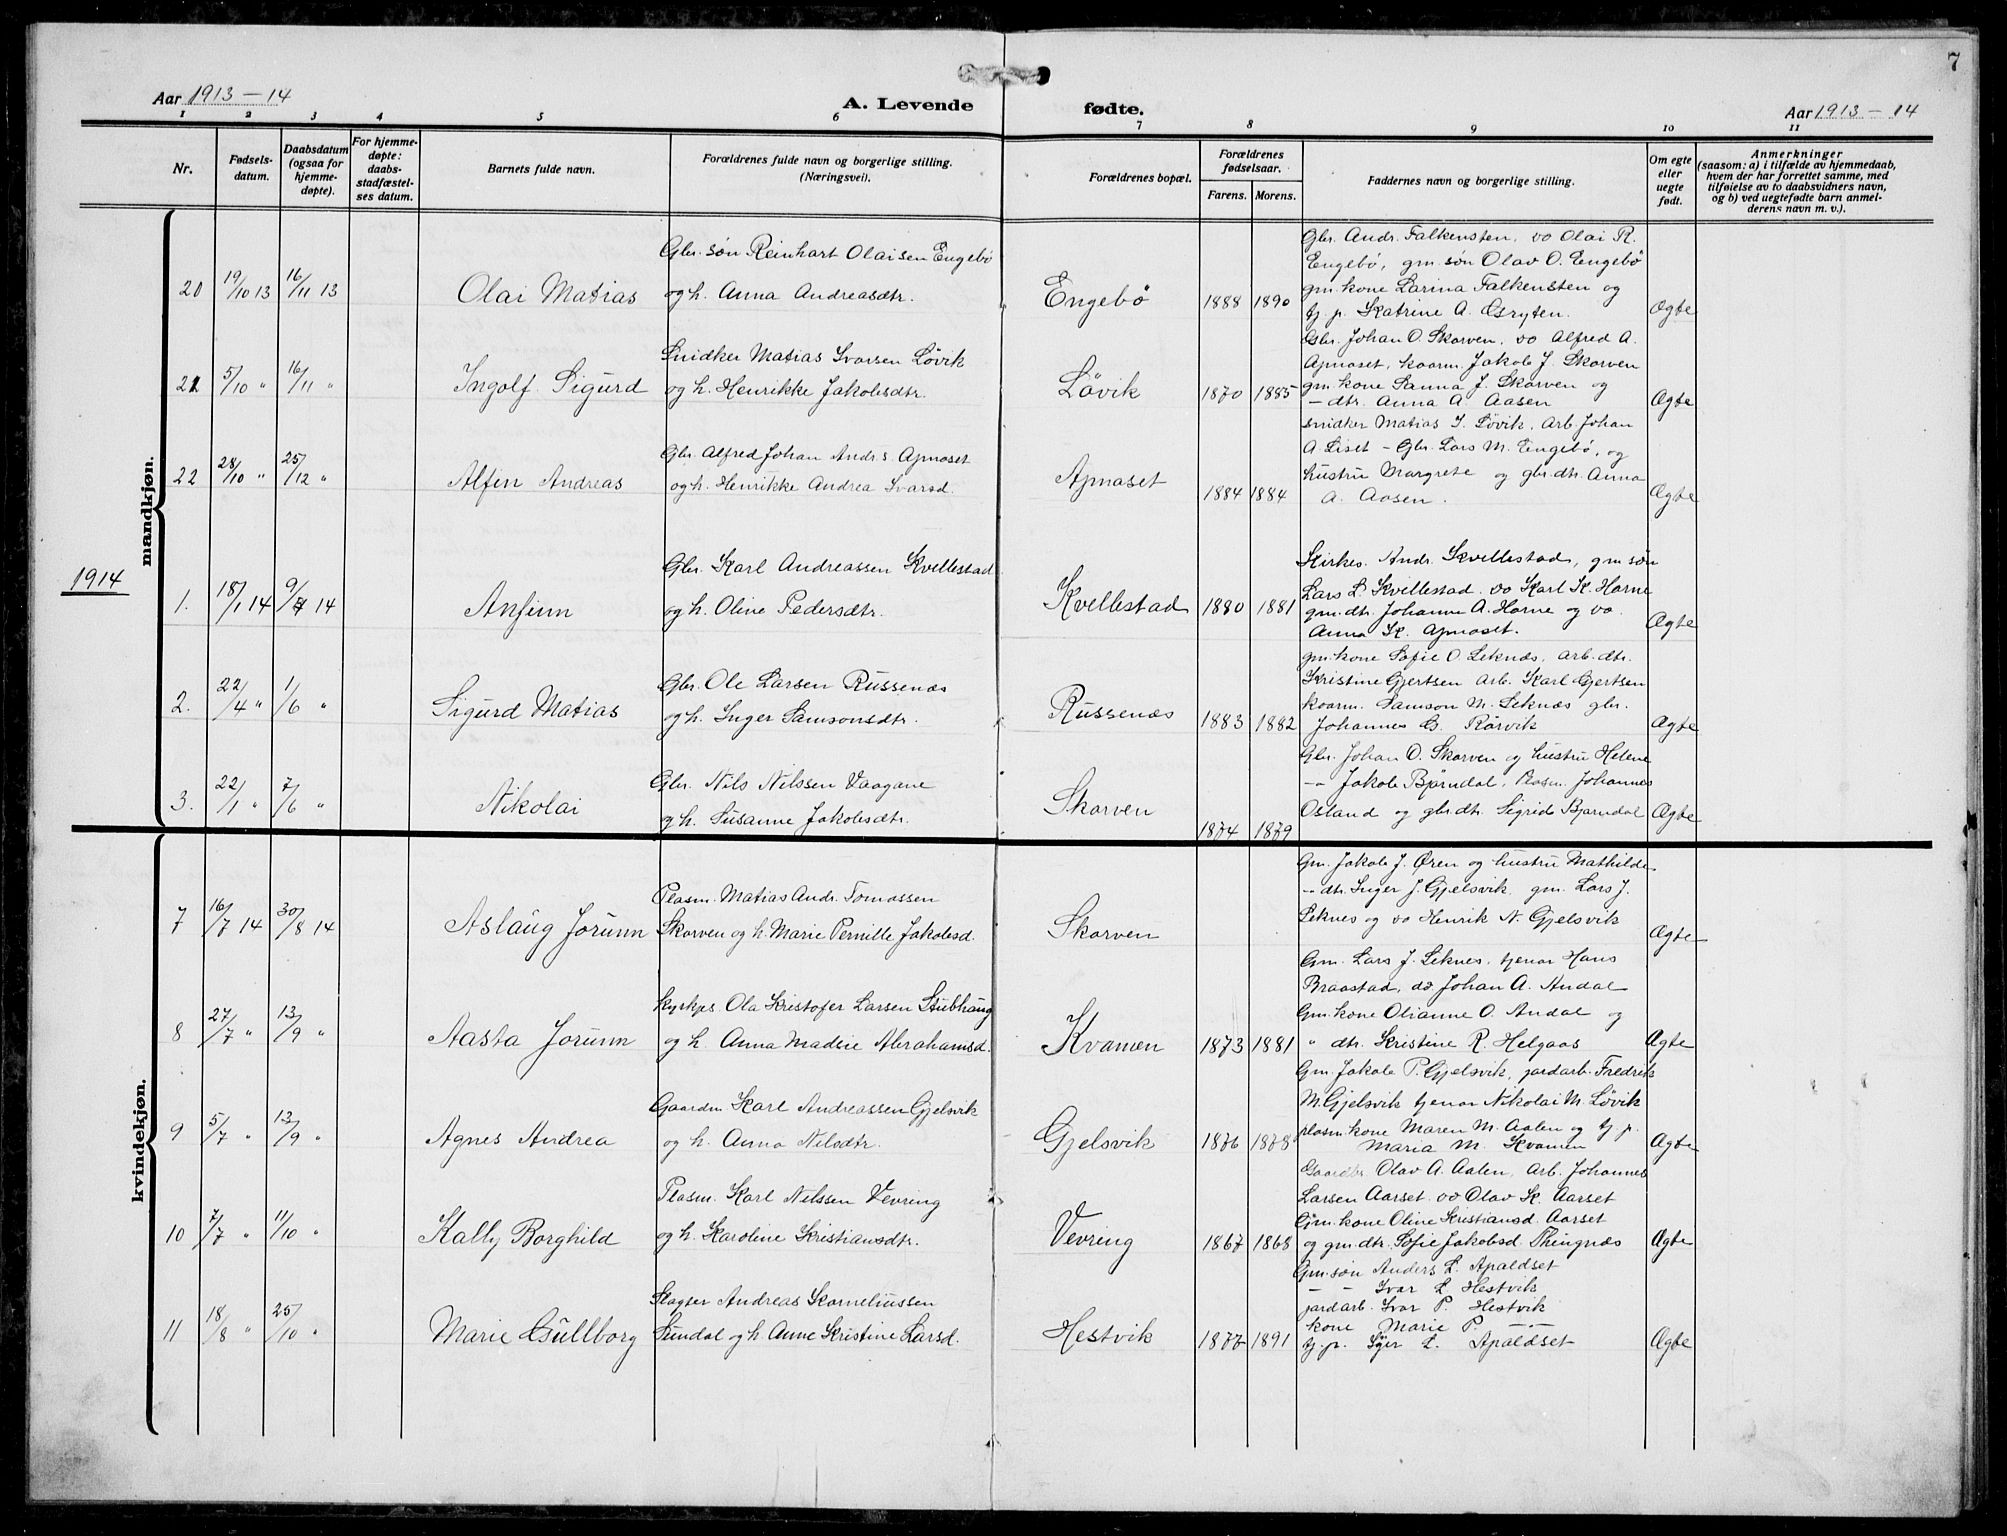 7
Aar 1913 - 14
A. Levende fødte.
Aar 1913 - 14
1 2 3 4 5 6 7 8 9 10 11
Nr.
Fødsels-
datum.
Daabsdatum
(ogsaa for
hjemme-
døpte).
For hjemme-
døpte:
daabs-
stadfæstel-
ses datum.
Barnets fulde navn.
Forældrenes fulde navn og borgerlige stilling.
(Næringsvei).
Forældrenes bopæl.
Forældrenes
fødselsaar.
Farens. Morens.
Faddernes navn og borgerlige stilling.
Om egte
eller
uegte
født.
Anmerkninger
(saasom: a) i tilfælde av hjemmedaab,
hvem der har forrettet samme, med
tilføielse av to daabsvidners navn,
og b) ved uegtefødte barn anmel-
derens navn m. v.).
mandkjøn.
20 19/10 13 16/11 13 Olai Matias
Gbr. søn Reinhart Olaisen Engebö
og h. Anna Andreasdtr.
Engebö 1888 1890
Gbr. Andr. Falkensten, do Olai R.
Engebö, gm. søn Olav O. Engebö
gm. kone Larina Falkensten og
tj. p. Katrine A. Osryten.
Ægte
21 5/10 " 16/11 " Ingolf Sigurd
Snidker Matias Ivarsen Lövik
og h. Henrikke Jakobsdtr.
Lövik 1870 1885
Gbr. Johan O. Skorven, do Alfred A.
Apnaset, kaarm. Jakob J. Skorven
gm. kone Sanna J. Skorven og
- dtr. Anna A. Aasen
Ægte
22 28/10 " 25/12 " Alfin Andreas
Gbr. Alfred Johan Andr.s. Apnaset
og h. Henrikke Andrea Ivarsd.
Apnaset 1884 1884
snidker Matias I. Lövik, Arb. Johan
A. Liset - Gbr. Lars M. Engebö, og
hustru Margrete og gbr. dtr. Anna
A. Aasen.
Ægte
1914
1. 18/1 14 9/4 14 Anfinn
Gbr. Karl Andreassen Kvellestad
og h. Oline Pedersdtr.
Kvellestad 1880 1881
Kirkes. Andr. Kvellestad, gm. søn
Lars L. Kvellestad. do Karl K. Horne
gm. dtr. Johanne A. Horne og do.
Anna K. Apnaset.
Ægte
2. 22/4 " 1/6 " Sigurd Matias
Gbr. Ole Larsen Russenæs
og h. Inger Samsonsdtr.
Russenæs 1883 1882
gm. kone Sofie O. Leknæs, arb. dtr.
Kristine Gjertsen arb. Karl Gjertsen
kaarm. Samson M. Leknæs gbr.
Johannes G. Rörvik
Ægte
3. 22/1 " 7/6 " Nikolai
Gbr. Nils Nilssen Vaagane
og h. Susanne Jakobsdtr.
Skorven 1874 1879
Gbr. Johan O. Skorven og hustru Helene
-"- Jakob Bjørndal, Plasm. Johannes
Osland og gbr. dtr. Sigrid Bjørndal
Ægte
kvindekjøn.
7 16/7 14 30/8 14 Aslaug Jorunn
Plasm. Matias Andr. Tomassen
Skorven og h. Marie Pernille Jakobsd.
Skorven
Gm. Jakob J. Øren og hustru Mathilde
-"- dtr. Inger J. Gjelsvik, gm. Lars J.
Leknes og do Henrik N. Gjelsvik
Ægte
8 27/7 " 13/9 " Aasta Jorunn
Kyrkjes Ola Kristofer Larsen Stubhaug
og h. Anna Madsie Abrahamsd.
Kvamen 1873 1881
Gm. Lars J. Leknes, tjenar Hans
Braastad, do Johan A. Andal
Gm. kone Olianne O. Andal og
" dtr. Kristine R. Helgaas
Ægte
9 5/7 " 13/9 " Agnes Andrea
Gaardm. Karl Andreassen Gjelsvik
og h. Anna Nilsdtr.
Gjelsvik 1876 1878
Gm. Jakob P. Gjelsvik, jardarb. Fredrik
M. Gjelsvik tjenar Nikolai M. Lövik
plasm. kone Maren M. Aalen og tj. p.
Maria M. Kvamen
Ægte
10 7/7 " 11/10 " Kally Borghild
Plasm. Karl Nilssen Vevring
og h. Karoline Kristiansdtr.
Vevring 1867 1868
Gaardbr. Olav A. Aalen, Arb. Johannes
Larsen Aarset. do Olav K. Aarset
Gm. kone Oline Kristiansd. Aarset
og gm. dtr. Sofie Jakobsd. Thingnæs
Ægte
11 18/8 " 25/10 " Marie Gullborg
Slagter Andreas Korneliussen
Sundal og h. Anne Kristine Larsd.
Hestvik 1877 1891
Gm. søn Anders L. Apaldset
- - Ivar L. Hestvik
jardarb. Ivar P. Hestvik
kone Marie P. -"-
tj. p. Siger L. Apaldset
Ægte